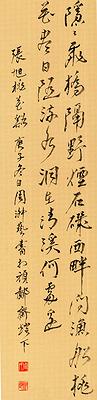 隱〻飛橋隔野煙石磯西畔問漁船桃
花盡日隨流水洞在清溪何處邊
張旭桃花谿 庚子冬日 藝書於 齋燈下